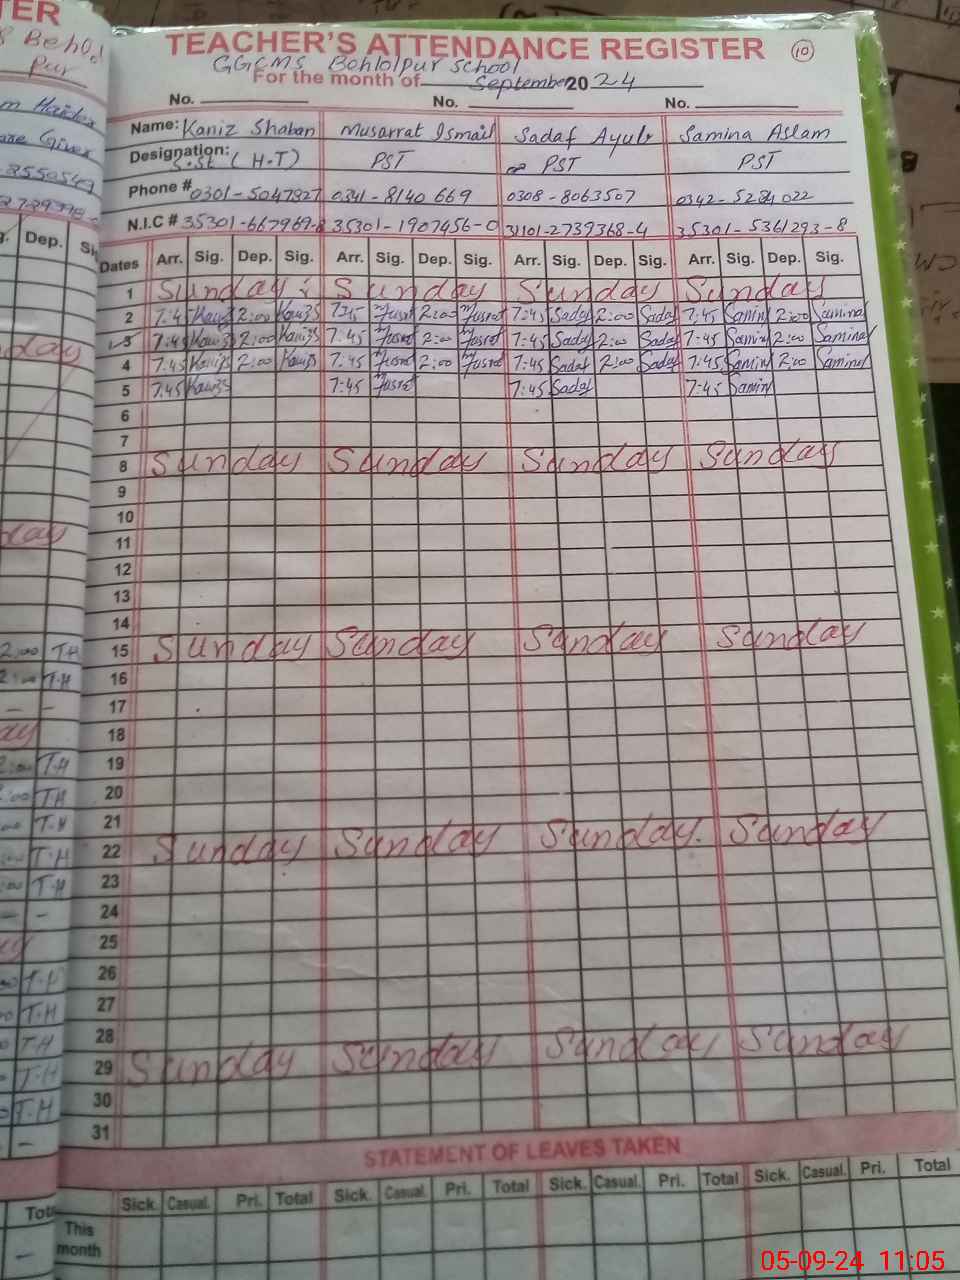 TER
TEACHER'S ATTENDANCE REGISTER 10
GGCMS Bohlolpur School
For the month of September 2024
No. No. No.
Name: Kaniz Shaban Musarrat Ismail Sadaf Ayub Samina Aslam
Designation: S.St (H.T) PST PST PST
Phone # 0301-5047927 0341-8140669 0308-8063507 0342-5284022
N.I.C # 35301-667969-8 35301-1907456-0 31101-2739368-4 35301-5361293-8
Dates Arr. Sig. Dep. Sig. Arr. Sig. Dep. Sig. Arr. Sig. Dep. Sig. Arr. Sig. Dep. Sig.
1 Sunday Sunday Sunday Sunday
2 7:45 Kaniz 2:00 Kaniz 7:45 Musrat 2:00 Musrat 7:45 Sadaf 2:00 Sadaf 7:45 Samina 2:00 Samina
3 7:45 Kaniz 2:00 Kaniz 7:45 Musrat 2:00 Musrat 7:45 Sadaf 2:00 Sadaf 7:45 Samina 2:00 Samina
4 7:45 Kaniz 2:00 Kaniz 7:45 Musrat 2:00 Musrat 7:45 Sadaf 2:00 Sadaf 7:45 Samina 2:00 Samina
5 7:45 Kaniz 7:45 Musrat 7:45 Sadaf 7:45 Samina
6
7
8 Sunday Sunday Sunday Sunday
9
10
11
12
13
14
15 Sunday Sunday Sunday Sunday
16
17
18
19
20
21
22 Sunday Sunday Sunday Sunday
23
24
25
26
27
28
29 Sunday Sunday Sunday Sunday
30
31
STATEMENT OF LEAVES TAKEN
Sick. Casual. Pri. Total Sick. Casual. Pri. Total Sick. Casual. Pri. Total Sick. Casual. Pri. Total
This month
05-09-24 11:05